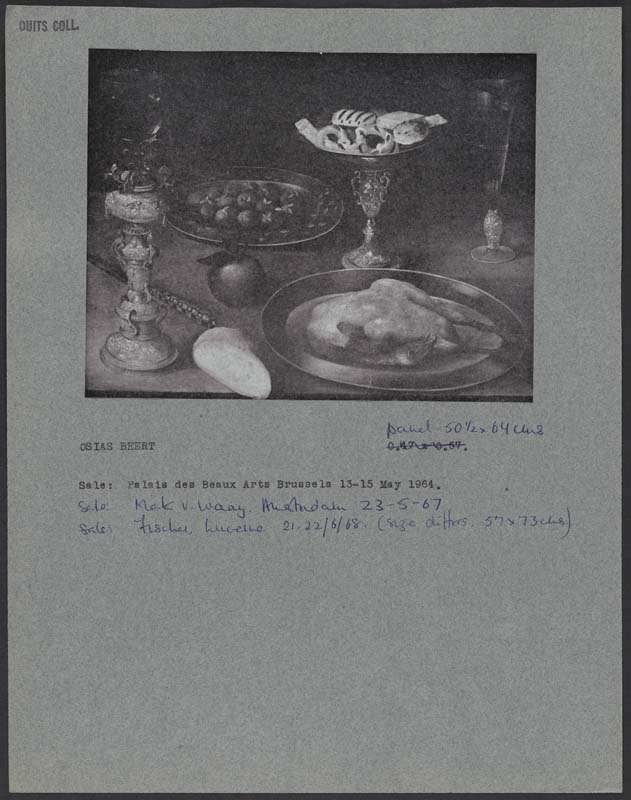 DUITS COLL.
panel 50½ x 64 cms
OSIAS BEERT 0.47 x 0.67.
Sale: Palais des Beaux Arts Brussels 13-15 May 1964.
Sale: Mak v. Waay. Amsterdam 23-5-67
Sale: Fischer, Lucerne 21-22/6/68. (size differs. 57 x 73 cms)